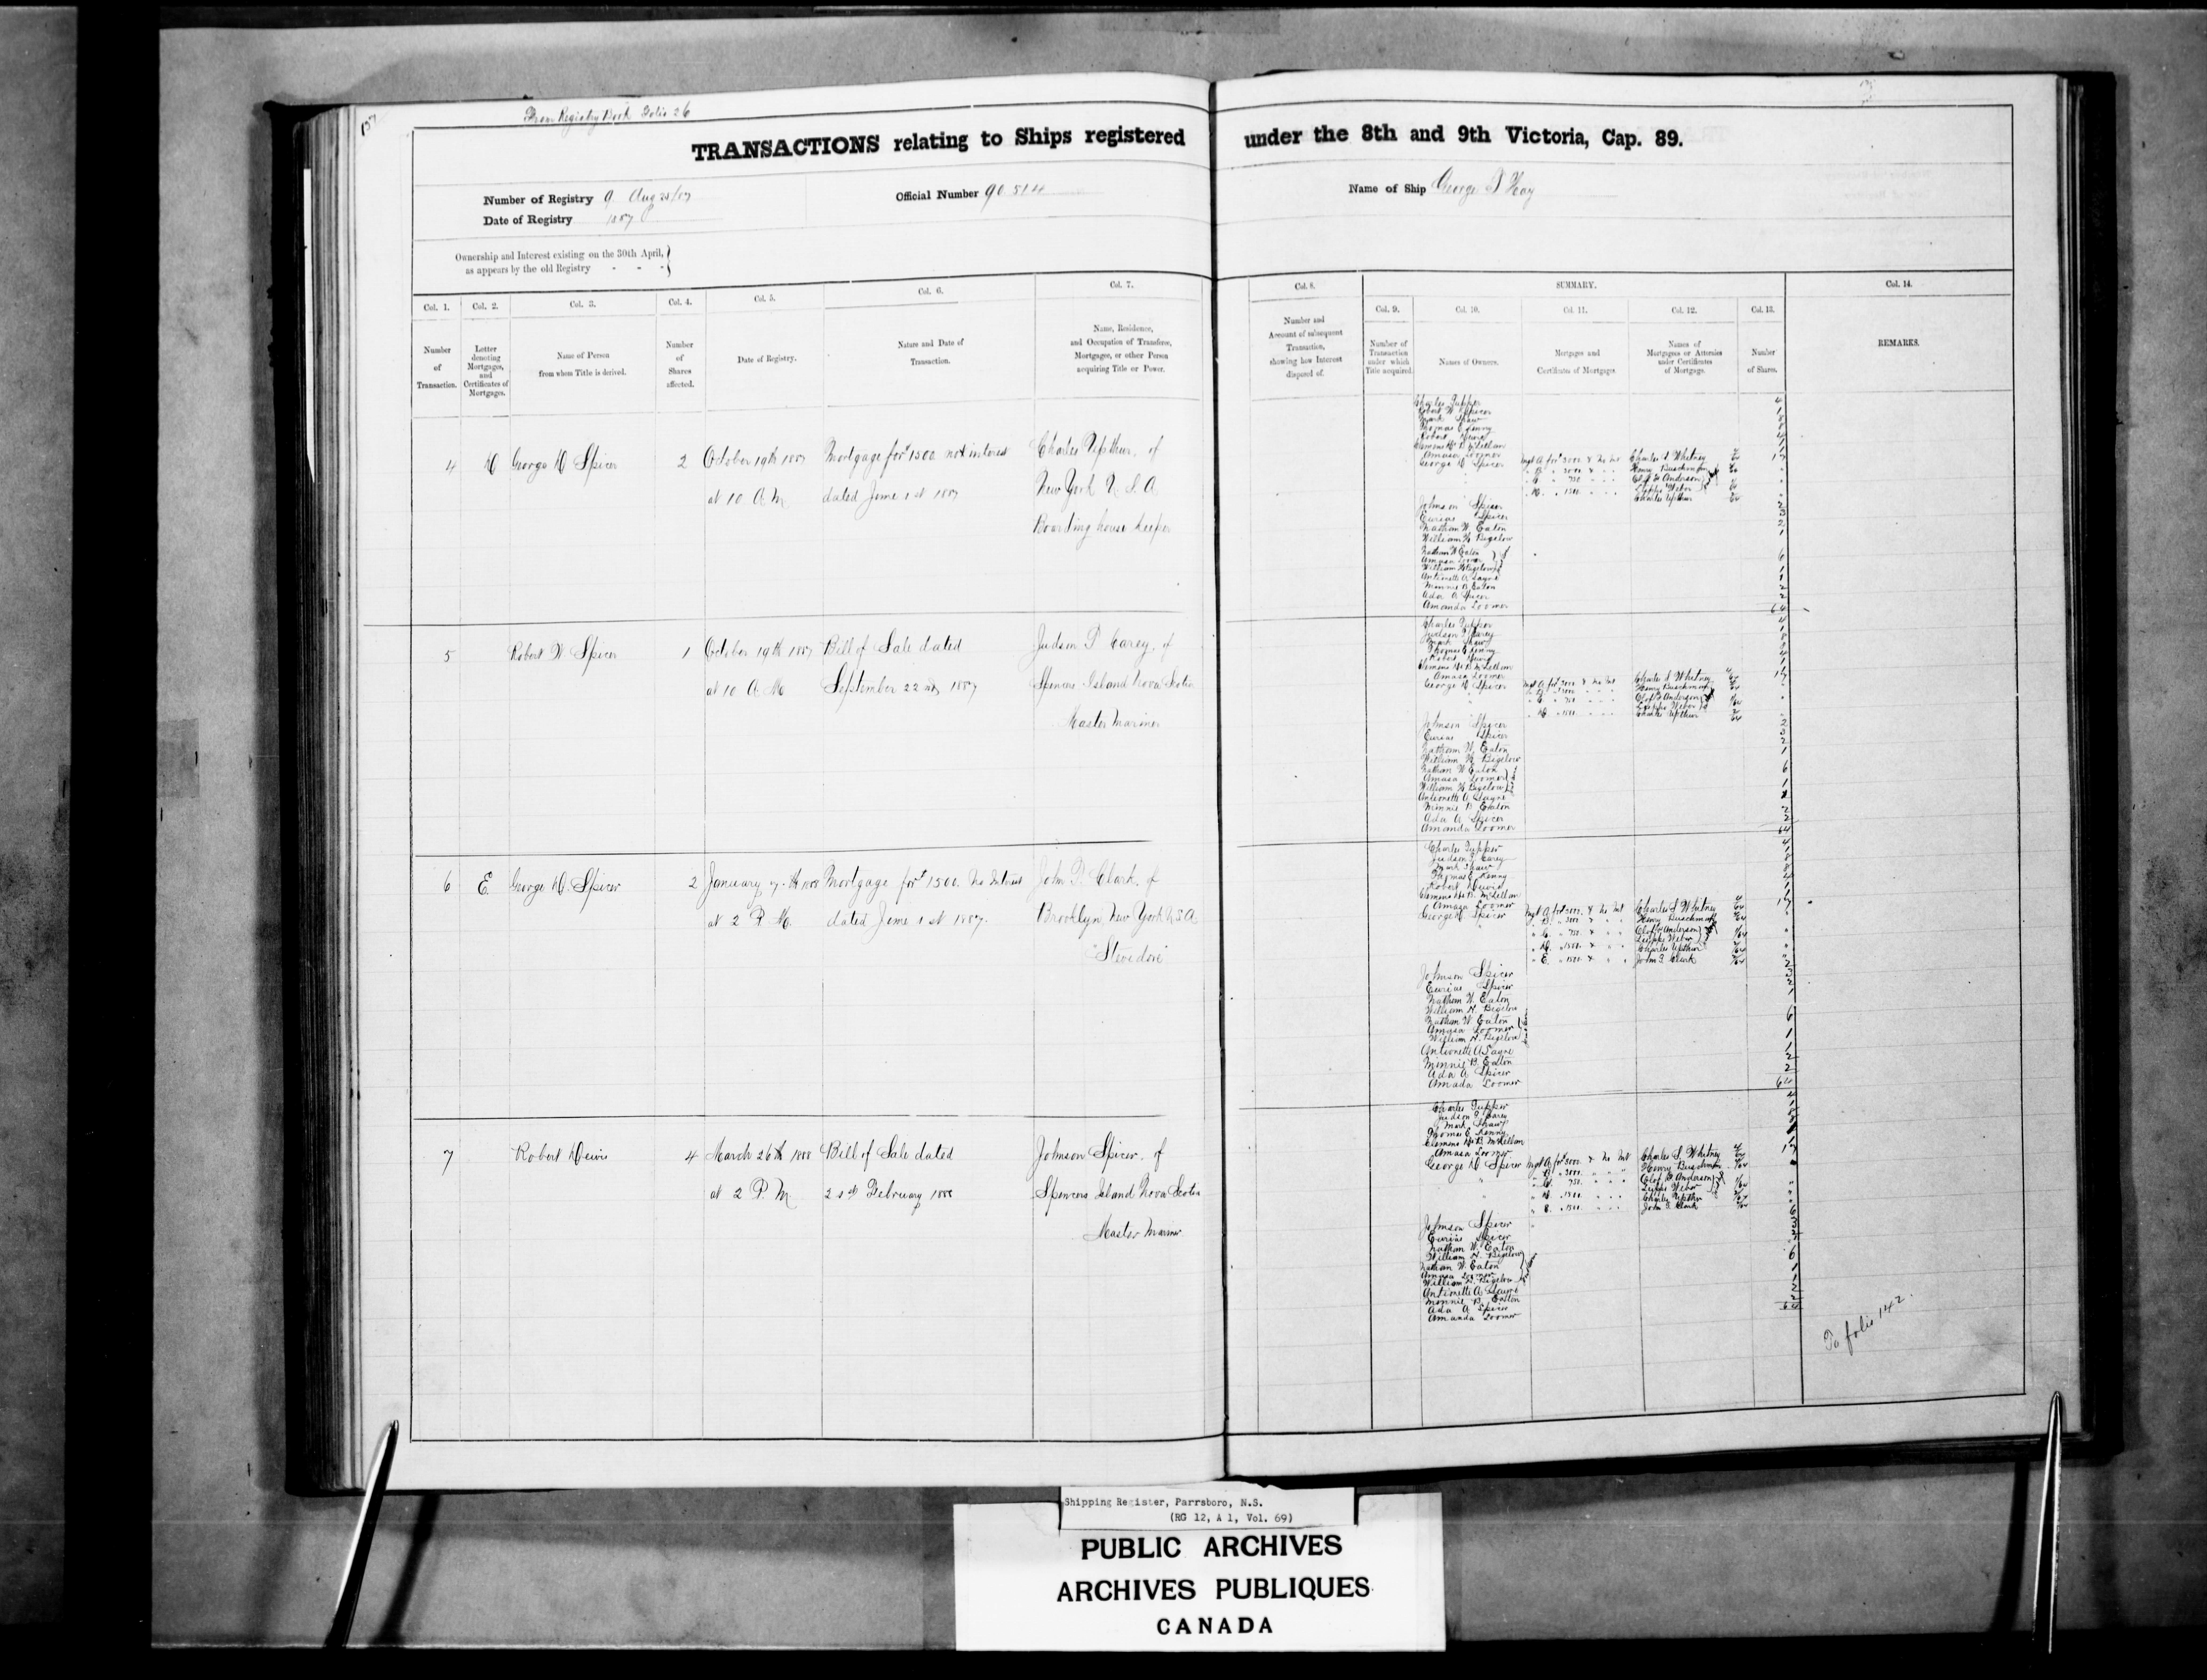 From Registry Book Folio 26
137
TRANSACTIONS relating to Ships registered under the 8th and 9th Victoria, Cap. 89.
Number of Registry 9 Aug 25/87
Date of Registry 1887
Official Number 90.514
Name of Ship George T Hay
Ownership and Interest existing on the 30th April,
as appears by the old Registry - - -
Col. 1.
Number
of
Transaction.
Col. 2.
Letter
denoting
Mortgages,
and
Certificates of
Mortgages.
Col. 3.
Name of Person
from whom Title is derived.
Col. 4.
Number
of
Shares
affected.
Col. 5.
Date of Registry.
Col. 6.
Nature and Date of
Transaction.
Col. 7.
Name, Residence,
and Occupation of Transferee,
Mortgagee, or other Person
acquiring Title or Power.
Col. 8.
Number and
Account of subsequent
Transaction,
showing how Interest
disposed of.
SUMMARY.
Col. 9.
Number of
Transaction
under which
Title acquired.
Col. 10.
Names of Owners.
Col. 11.
Mortgages and
Certificates of Mortgages.
Col. 12.
Names of
Mortgagees or Attornies
under Certificates
of Mortgage.
Col. 13.
Number
of Shares.
Col. 14.
REMARKS.
4 D George D Spicer 2 October 19th 1887 Mortgage for $1500 no interest Charles Upthur, of
at 10 A M dated June 1st 1887 New York U S A
Boarding house keeper
Charles Tupper
Robert W Spicer
Mark Shaw
Thomas E Kenny
Robert Dewis
Clemens H B McLellan
Amasa Loomer
George D Spicer Mgt A for $3000 & No Int Charles S Whitney
Henry Buschman
C 750 Olof G Anderson
D 1500 Charles Upthur
Johnson Spicer
Eurias Spicer
Nathan W. Eaton
William H Bigelow
Nathan W Eaton
Amasa Loomer
William H Bigelow
Antionette A Sayre
Minnie B Eaton
Ada A Spicer
Amanda Loomer
64
5 Robert W Spicer 1 October 19th 1887 Bill of Sale dated Judson T Carey, of
at 10 A M September 22nd 1887 Spencers Island Nova Scotia
Master Mariner
Charles Tupper
Judson T Carey
Mark Shaw
Thomas E Kenny
Robert Dewis
Clemens H B McLellan
Amasa Loomer
George D Spicer Mgt A for $3000 & No Int Charles S Whitney
Henry Buschman
Olof G Anderson
D 1500 Charles Upthur
Johnson Spicer
Eurias Spicer
Nathan W. Eaton
William H Bigelow
Nathan W Eaton
Amasa Loomer
William H Bigelow
Antionette A Sayre
Minnie B Eaton
Ada A Spicer
Amanda Loomer
64
6 E. George D. Spicer 2 January 7th 1888 Mortgage for $1500. No Interest John T. Clark, of
at 2 P. M. dated June 1st 1887. Brooklyn New York U S A
Stevedore
Charles Tupper
Judson T. Carey
Mark Shaw
Thomas E. Kenny
Robert Dewis
Clemens H. B. McLellan
Amasa Loomer
George D. Spicer Mgt A for $3000. & No Int Charles S Whitney
B. 3000 Henry Buschman
C. 750 Olof G Anderson
D. 1500 Charles Upthur
E. 1500 John T. Clark
Johnson Spicer
Eurias Spicer
Nathan W. Eaton
William H. Bigelow
Nathan W Eaton
Amasa Loomer
William H. Bigelow
Antionette A Sayre
Minnie B. Eaton
Ada A Spicer
Amada Loomer
64
7 Robert Dewis 4 March 26th 1888 Bill of Sale dated Johnson Spicer, of
at 2 P. M 21st February 1888 Spencers Island Nova Scotia
Master Mariner
Charles Tupper
Judson T. Carey
Mark Shaw
Thomas E. Kenny
Clemens H. B McLellan
Amasa Loomer
George D Spicer Mgt A for $3000 & No Int Charles S. Whitney
B. 3000 Henry Buschman
C. 750 Olof G Anderson
D. 1500 Charles Upthur
E. 1500 John T. Clark
Johnson Spicer
Eurias Spicer
Nathan W. Eaton
William H. Bigelow
Nathan W. Eaton
Amasa Loomer
William H. Bigelow
Antionette A Sayre
Minnie B. Eaton
Ada A Spicer
Amanda Loomer
64
To folio 142.
Shipping Register, Parrsboro, N.S.
(RG 12, A 1, Vol. 69)
PUBLIC ARCHIVES
ARCHIVES PUBLIQUES
CANADA